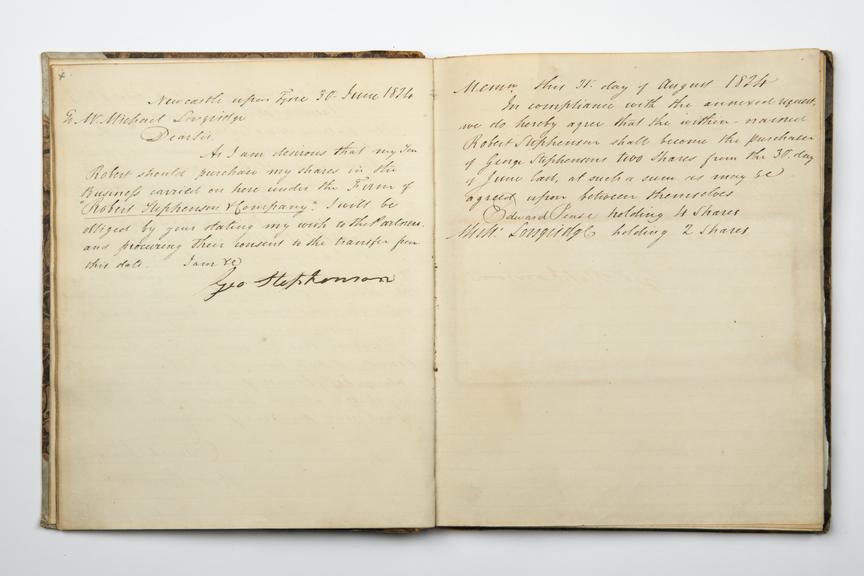 4.
Newcastle upon Tyne 30 June 1824
To Mr. Michael Longridge
Dear Sir
As I am desirous that my Son
Robert should purchase my shares in the
Business carried on here under the Firm of
"Robert Stephenson & Company" I will be
obliged by your stating my wish to the Partners
and procuring their consent to the transfer from
this date. I am &c
Geo Stephenson
Memm. this 31. day of August 1824
In compliance with the annexed request,
we do hereby agree that the within-named
Robert Stephenson shall become the purchaser
of George Stephensons two shares from the 30. day
of June last, at such a sum as may be
agreed upon between themselves
Edward Pease holding 4 Shares
Michl. Longridge holding 2 Shares